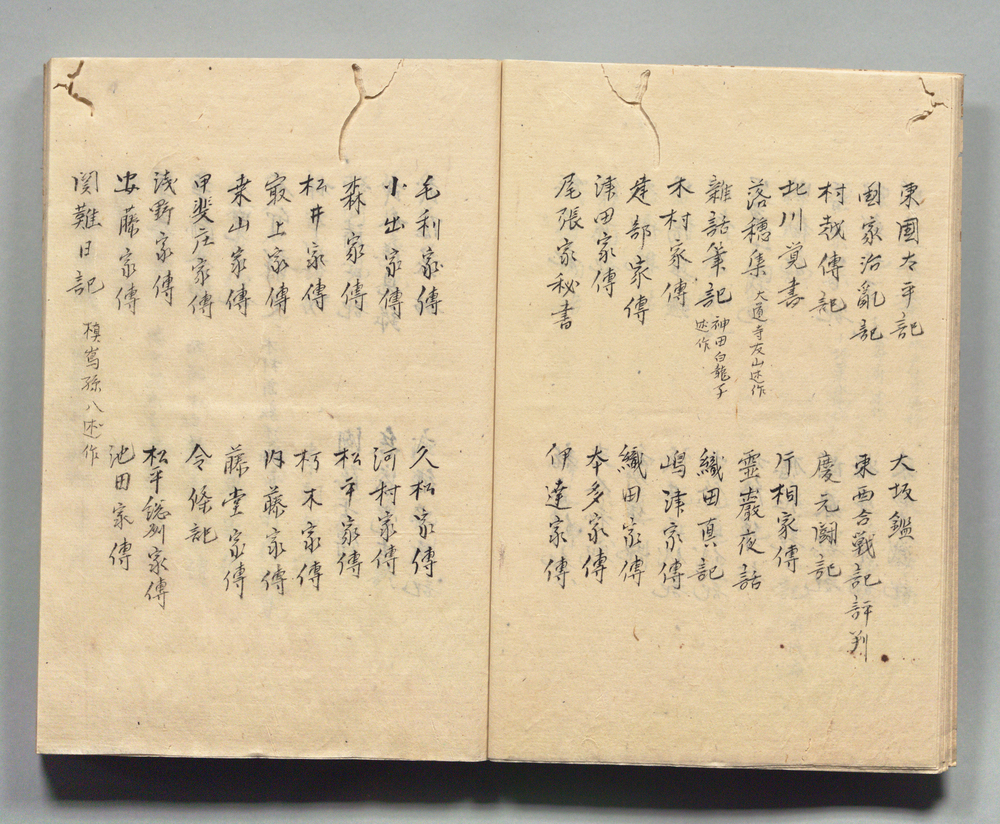 東國太平記
大坂鑑
国家治亂記
東西合戰記評判
村越傳記
慶元闘記
北川覚書
片桐家傳
落穂集 大道寺友山述作
霊巖夜話
雜話筆記 神田白龍子述作
織田真記
木村家傳
嶋津家傳
建部家傳
織田家傳
津田家傳
本多家傳
尾張家秘書
伊達家傳
毛利家傳
久松家傳
小出家傳
河村家傳
森家傳
松平家傳
松井家傳
朽木家傳
最上家傳
内藤家傳
桑山家傳
藤堂家傳
甲斐庄家傳
令條記
浅野家傳
松平総州家傳
安藤家傳
池田家傳
関難日記 槙嶌孫八述作